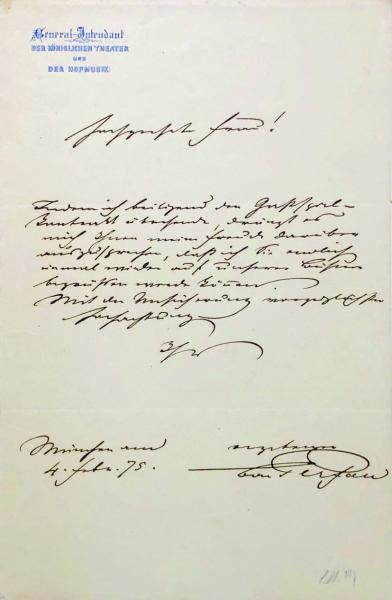 General-Intendant
DER KÖNIGLICHEN THEATER
UND
DER HOFMUSIK
Hochgeehrte Frau!
Indem ich beiliegend den Gastspiel-
kontrakt übersende, drängt es
mich Ihnen meine Freude darüber
auszusprechen, daß ich Sie endlich
einmal wieder auf unserer Bühne
begrüßen werde können.
Mit der Versicherung vorzüglichster
Hochachtung
Ihr
München am
4. Febr. 75.
ergebener